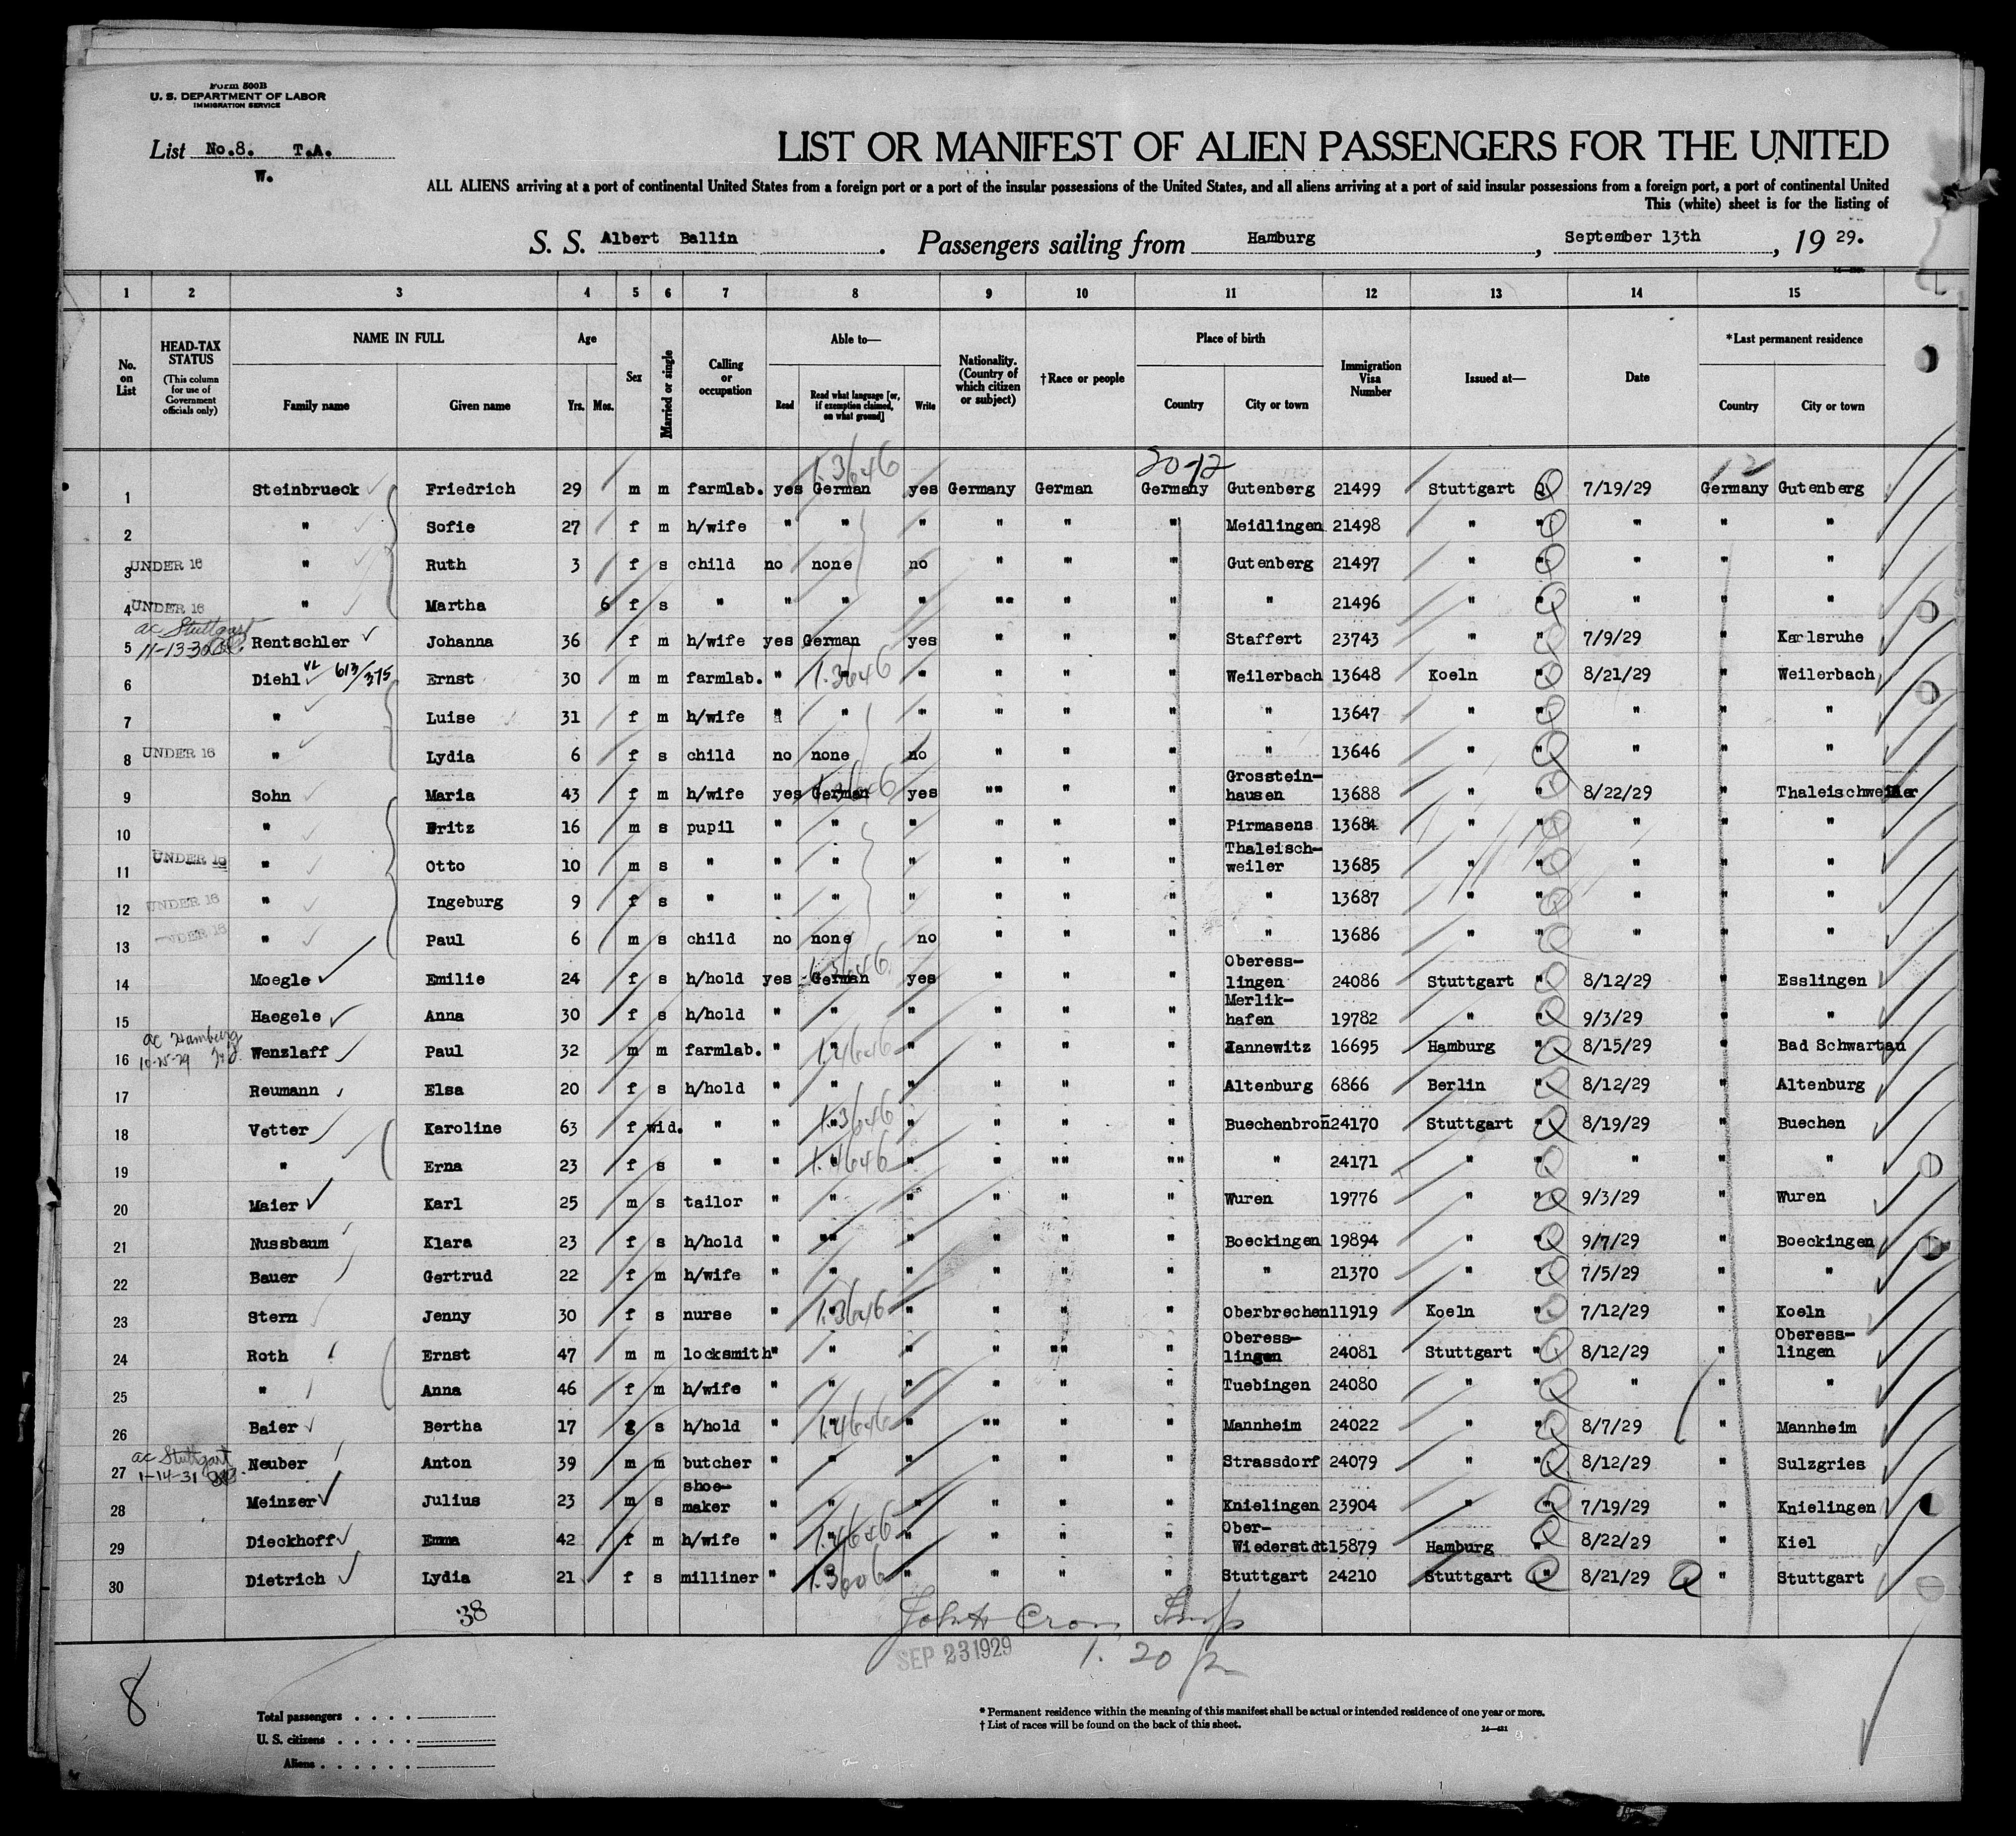 Form 500B
U. S. DEPARTMENT OF LABOR
IMMIGRATION SERVICE
List No.8. T.A.
W.
LIST OR MANIFEST OF ALIEN PASSENGERS FOR THE UNITED
ALL ALIENS arriving at a port of continental United States from a foreign port or a port of the insular possessions of the United States, and all aliens arriving at a port of said insular possessions from a foreign port, a port of continental United
This (white) sheet is for the listing of
S. S. Albert Ballin . Passengers sailing from Hamburg , September 13th , 19 29.
1 2 3 4 5 6 7 8 9 10 11 12 13 14 15
No. on List
HEAD-TAX STATUS (This column for use of Government officials only)
NAME IN FULL
Family name Given name
Age
Yrs. Mos.
Sex
Married or single
Calling or occupation
Able to—
Read Read what language [or, if exemption claimed, on what ground] Write
Nationality. (Country of which citizen or subject)
†Race or people
Place of birth
Country City or town
Immigration Visa Number
Issued at—
Date
*Last permanent residence
Country City or town
1.3/646 20-12 12
1 Steinbrueck Friedrich 29 m m farmlab. yes German yes Germany German Germany Gutenberg 21499 Stuttgart Q 7/19/29 Germany Gutenberg
2 " Sofie 27 f m h/wife " " " " " " Meidlingen 21498 " " " " "
3 UNDER 16 " Ruth 3 f s child no none no " " " Gutenberg 21497 " " " " "
4 UNDER 16 " Martha 6 f s " " " " "" " " " 21496 " " " " "
ac Stuttgart
5 11-13-30 Rentschler Johanna 36 f m h/wife yes German yes " " " Staffert 23743 " " 7/9/29 " Karlsruhe
6 Diehl 613/375 Ernst 30 m m farmlab. " 1.3646 " " " " Weilerbach 13648 Koeln " 8/21/29 " Weilerbach
7 " Luise 31 f m h/wife " " " " " " " 13647 " " " " "
8 UNDER 16 " Lydia 6 f s child no none no " " " " 13646 " " " " "
9 Sohn Maria 43 f m h/wife yes German yes "" " " Grosstein-hausen 13688 " " 8/22/29 " Thaleischweiler
10 " Fritz 16 m s pupil " " " " " " Pirmasens 13684 " " " " "
11 UNDER 16 " Otto 10 m s " " " " " " " Thaleisch-weiler 13685 " " " " "
12 UNDER 16 " Ingeburg 9 f s " " " " " " " " 13687 " " " " "
13 UNDER 16 " Paul 6 m s child no none no " " " " 13686 " " " " "
14 Moegle Emilie 24 f s h/hold yes German yes " " " Oberess-lingen 24086 Stuttgart 8/12/29 " Esslingen
15 Haegele Anna 30 f s h/hold " " " " " " Merlik-hafen 19782 " " 9/3/29 " "
ac Hamburg
16 10-25-29 Wenzlaff Paul 32 m m farmlab. " 1.4646 " " " " Jannewitz 16695 Hamburg " 8/15/29 " Bad Schwartau
17 Reumann Elsa 20 f s h/hold " " " " " " Altenburg 6866 Berlin " 8/12/29 " Altenburg
18 Vetter Karoline 63 f wid. " " 1.3/646 " " " " Buechenbron 24170 Stuttgart " 8/19/29 " Buechen
19 " Erna 23 f s " " 1.4646 " " "" "" " 24171 " " " " "
20 Maier Karl 25 m s tailor " " " " " " Wuren 19776 " " 9/3/29 " Wuren
21 Nussbaum Klara 23 f s h/hold " "" " " " " Boeckingen 19894 " " 9/7/29 " Boeckingen
22 Bauer Gertrud 22 f m h/wife " " " " " " " 21370 " " 7/5/29 " "
23 Stern Jenny 30 f s nurse " 1.3646 " " " " Oberbrechen 11919 Koeln " 7/12/29 " Koeln
24 Roth Ernst 47 m m locksmith " " " " "" " Oberess-lingen 24081 Stuttgart " 8/12/29 " Oberess-lingen
25 " Anna 46 f m h/wife " " " " " " Tuebingen 24080 " " " " "
26 Baier Bertha 17 f s h/hold " 1.4646 " "" " " Mannheim 24022 " " 8/7/29 " Mannheim
ac Stuttgart
27 1-14-31 Neuber Anton 39 m m butcher " " " " " " Strassdorf 24079 " " 8/12/29 " Sulzgries
28 Meinzer Julius 23 m s shoe-maker " " " " " " Knielingen 23904 " " 7/19/29 " Knielingen
29 Dieckhoff Emma 42 f m h/wife " 1.4646 " " " " Ober-Wiederstdt 15879 Hamburg " 8/22/29 " Kiel
30 Dietrich Lydia 21 f s milliner " 1.3606 " " " " Stuttgart 24210 Stuttgart " 8/21/29 Q " Stuttgart
38
SEP 23 1929
1. 20/12
8
Total passengers . . . .
U. S. citizens . . . . .
Aliens . . . . . .
* Permanent residence within the meaning of this manifest shall be actual or intended residence of one year or more.
† List of races will be found on the back of this sheet.